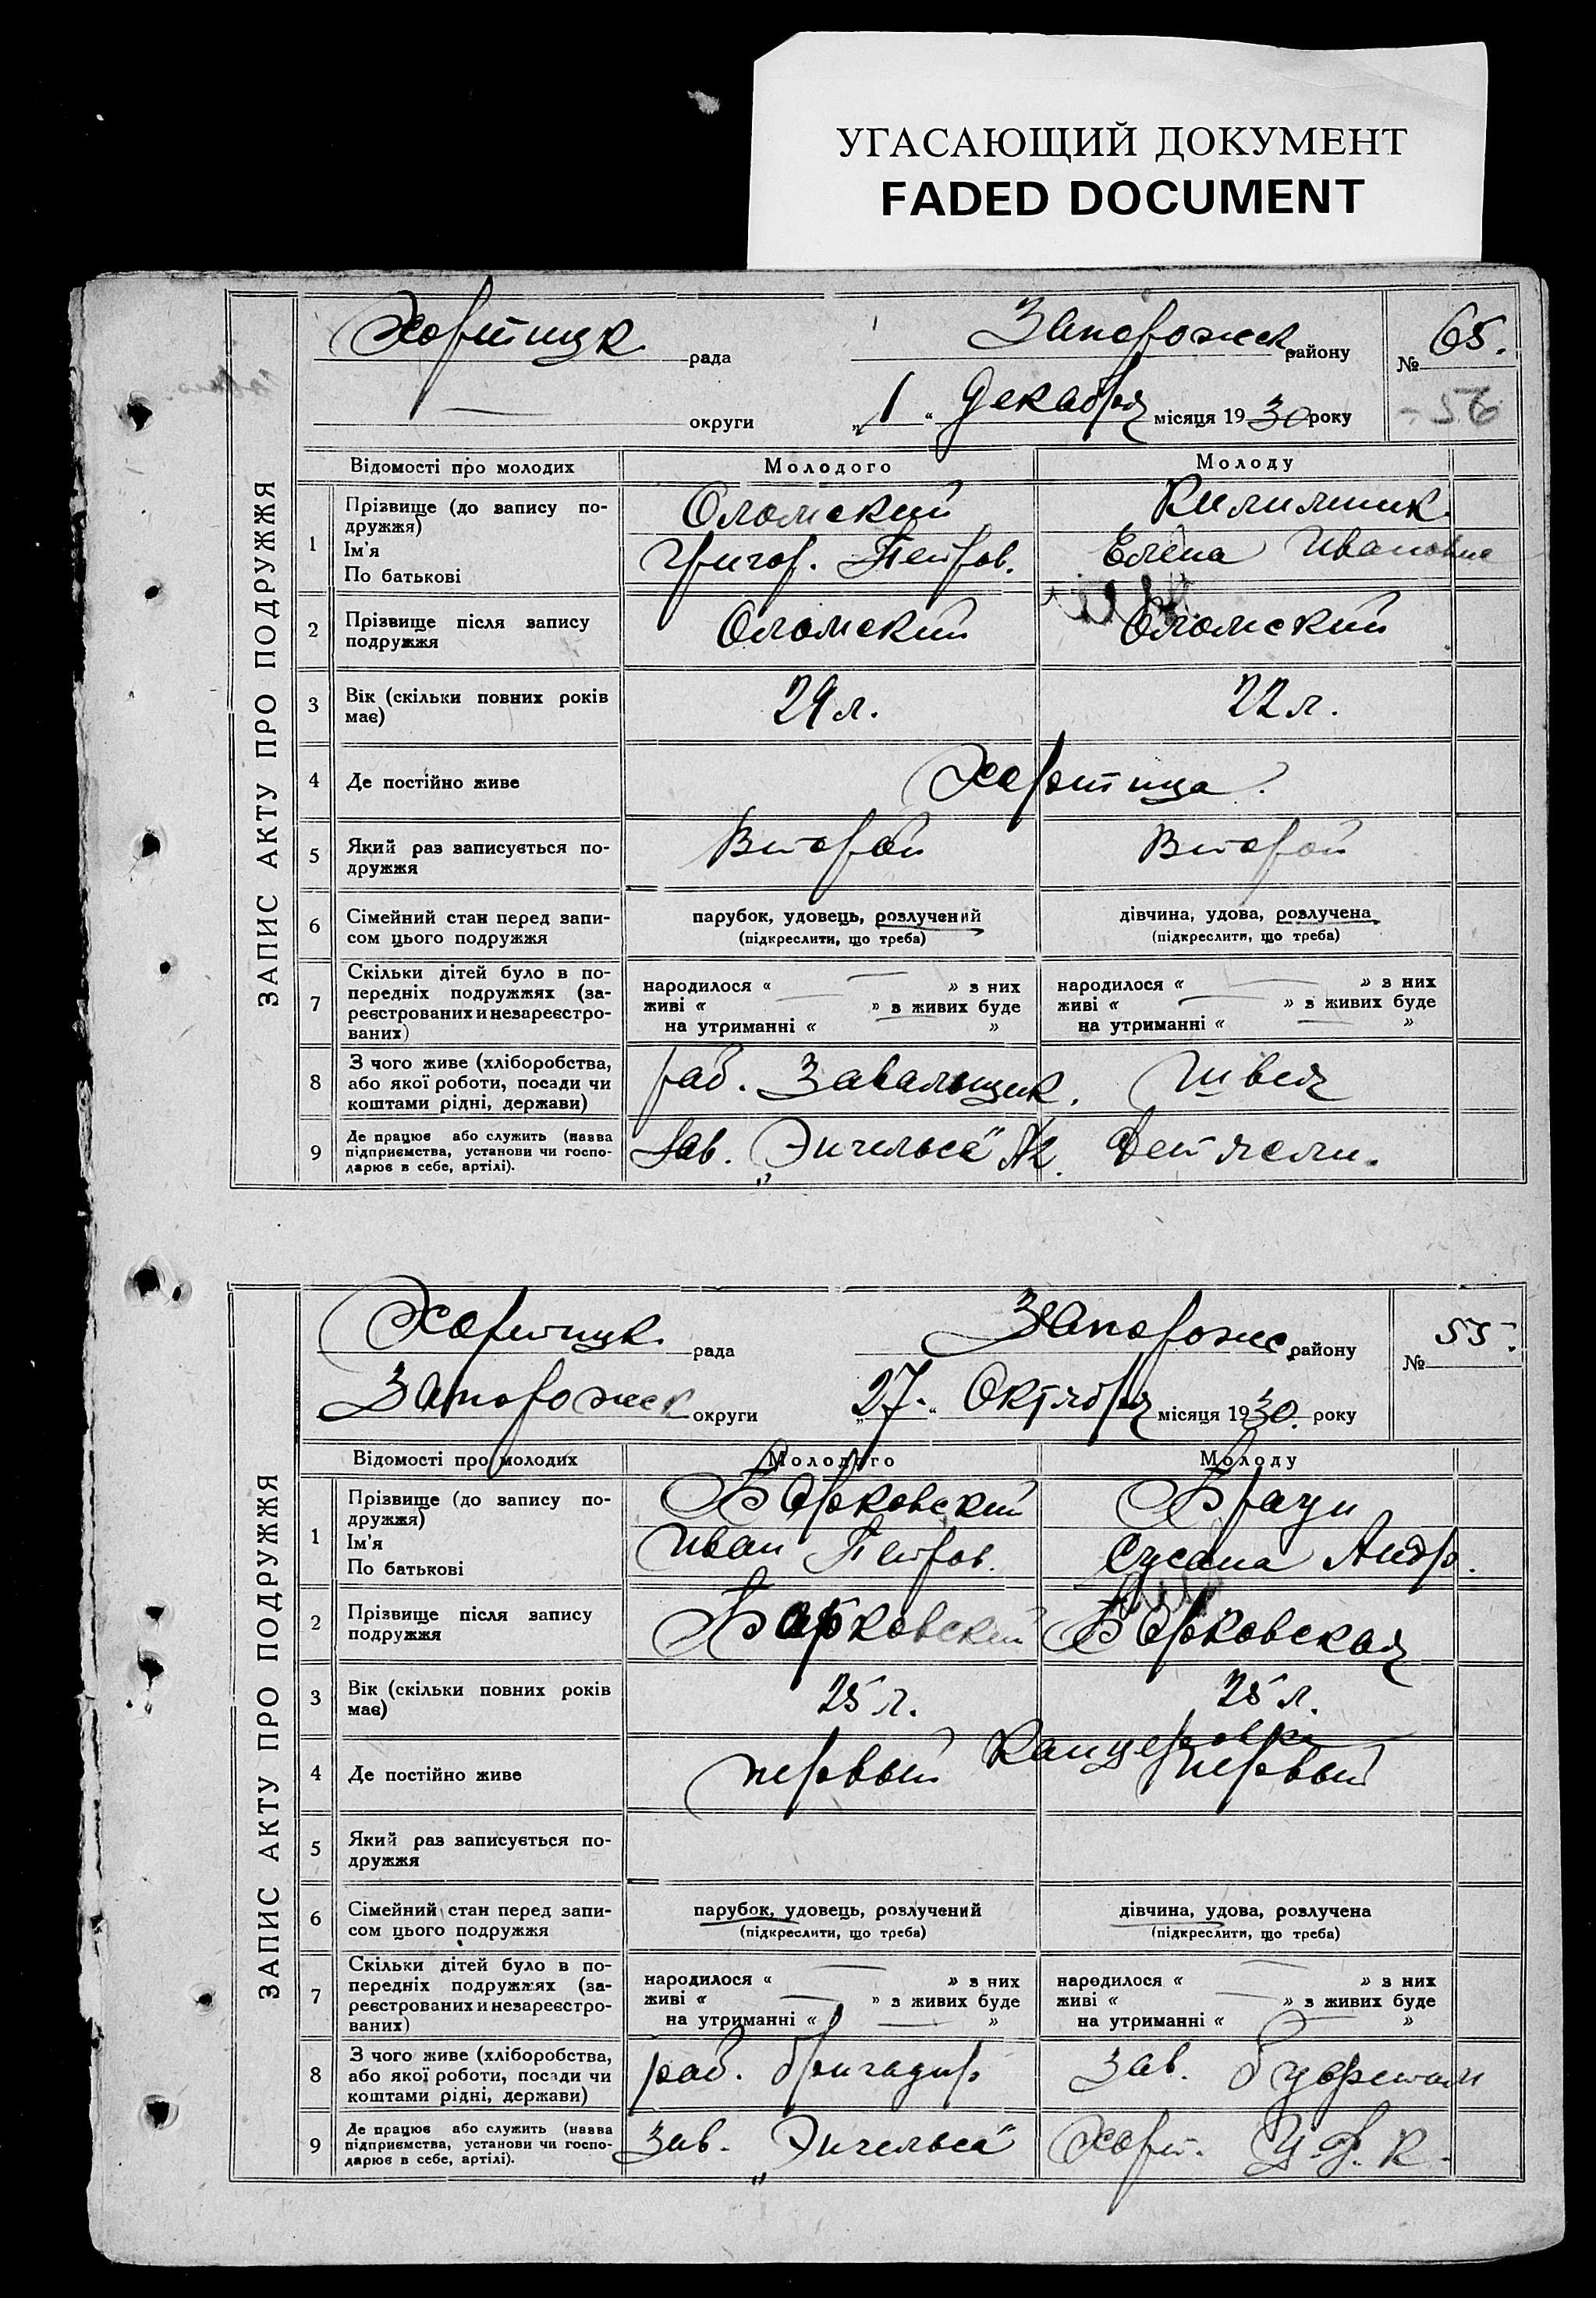 УГАСАЮЩИЙ ДОКУМЕНТ
FADED DOCUMENT
ЗАПИС АКТУ ПРО ПОДРУЖЖЯ
Хортицк рада Запорожск району № 65.
— округи „1“ Декабря місяця 1930 року - 56
Відомості про молодих Молодого Молоду
1 Прізвище (до запису по-
дружжя)
Ім'я
По батькові
Оломский
Григор. Петров.
Килимник
Елена Ивановна
2 Прізвище після запису
подружжя
Оломский Оломский
3 Вік (скільки повних років
має)
29 л. 22 л.
4 Де постійно живе Хортица.
5 Який раз записується по-
дружжя
Второй Второй
6 Сімейний стан перед запи-
сом цього подружжя
парубок, удовець, розлучений
(підкреслити, що треба)
дівчина, удова, розлучена
(підкреслити, що треба)
7 Скільки дітей було в по-
передніх подружжях (за-
реєстрованих и незареєстро-
ваних)
народилося « — » з них
живі « — » з живих буде
на утриманні « — »
народилося « — » з них
живі « — » з живих буде
на утриманні « — »
8 З чого живе (хліборобства,
або якої роботи, посади чи
коштами рідні, держави)
раб. Завальщик. Швея
9 Де працює або служить (назва
підприємства, установи чи госпо-
дарює в себе, артілі).
Зав. „Энгельса“ Дет ясли.
ЗАПИС АКТУ ПРО ПОДРУЖЖЯ
Хортицк рада Запорожс. району № 55.
Запорожск округи „27.“ Октября місяця 1930. року
Відомості про молодих Молодого Молоду
1 Прізвище (до запису по-
дружжя)
Ім'я
По батькові
Борковский
Иван Петров.
Браун
Сусана Андр.
2 Прізвище після запису
подружжя
Борковский Борковская
3 Вік (скільки повних років
має)
25 л. 25 л.
Канцеровка
4 Де постійно живе первый первый
5 Який раз записується по-
дружжя
6 Сімейний стан перед запи-
сом цього подружжя
парубок, удовець, розлучений
(підкреслити, що треба)
дівчина, удова, розлучена
(підкреслити, що треба)
7 Скільки дітей було в по-
передніх подружжях (за-
реєстрованих и незареєстро-
ваних)
народилося « — » з них
живі « — » з живих буде
на утриманні « — »
народилося « — » з них
живі « — » з живих буде
на утриманні « — »
8 З чого живе (хліборобства,
або якої роботи, посади чи
коштами рідні, держави)
раб. бригадир зав. буфетом
9 Де працює або служить (назва
підприємства, установи чи госпо-
дарює в себе, артілі).
Зав. „Энгельса“ Хорт. Ц.Р.К.